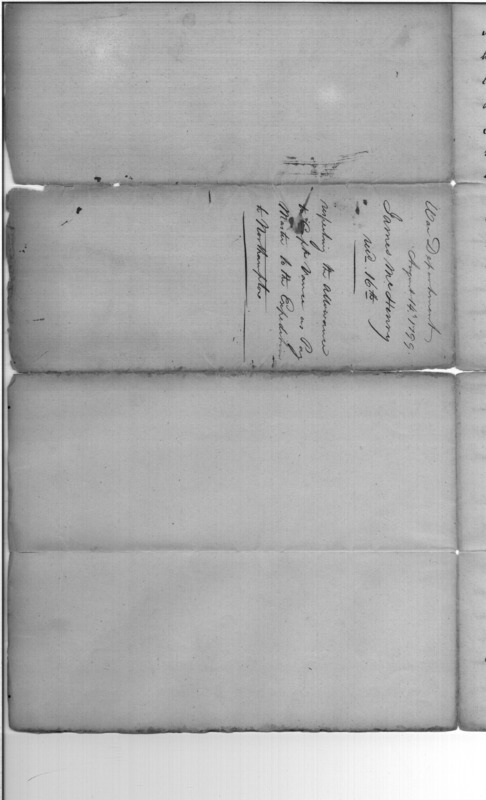 War Department
August 14th 1799.
James McHenry
recd. 16th
respecting the allowance
to Capt. Vance as Pay
Master to the Expedition
to Northampton